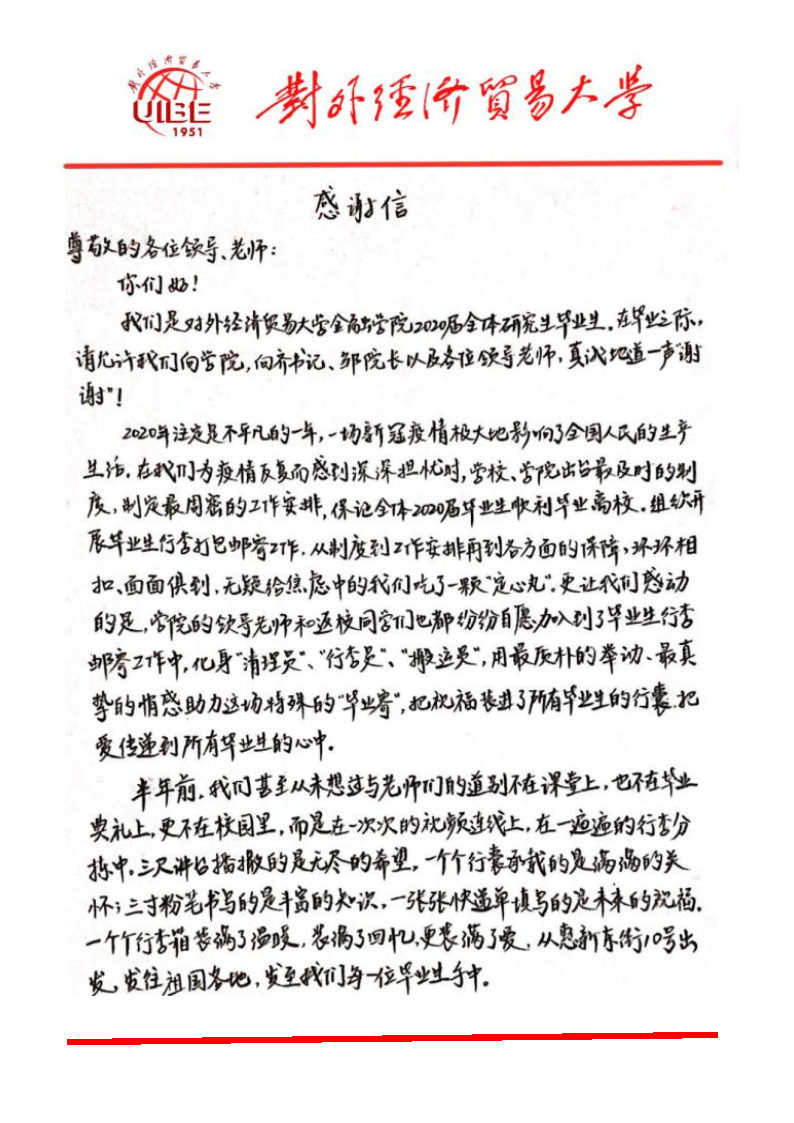 對外經濟貿易大學
UIBE
1951
對外經濟貿易大學
感谢信
尊敬的各位领导、老师：
你们好！
我们是对外经济贸易大学金融学院2020届全体研究生毕业生。在毕业之际，
请允许我们向学院，向齐书记、邹院长以及各位领导老师，真诚地道一声“谢
谢”！
2020年注定是不平凡的一年，一场新冠疫情极大地影响了全国人民的生产
生活。在我们为疫情反复而感到深深担忧时，学校、学院出台最及时的制
度，制定最周密的工作安排，保证全体2020届毕业生顺利毕业离校。组织开
展毕业生行李打包邮寄工作。从制度到工作安排再到各方面的保障，环环相
扣、面面俱到，无疑给焦虑中的我们吃了一颗“定心丸”。更让我们感动
的是，学院的领导老师和返校同学们也都纷纷自愿加入到了毕业生行李
邮寄工作中，化身“清理员”、“行李员”、“搬运员”，用最质朴的举动、最真
挚的情感助力这场特殊的“毕业寄”，把祝福装进了所有毕业生的行囊，把
爱传递到所有毕业生的心中。
半年前，我们甚至从未想过与老师们的道别不在课堂上，也不在毕业
典礼上，更不在校园里，而是在一次次的视频连线上，在一遍遍的行李分
拣中。三尺讲台播撒的是无尽的希望，一个个行囊承载的是满满的关
怀；三寸粉笔书写的是丰富的知识，一张张快递单填写的是未来的祝福。
一个个行李箱装满了温暖，装满了回忆，更装满了爱，从惠新东街10号出
发，发往祖国各地，发至我们每一位毕业生手中。